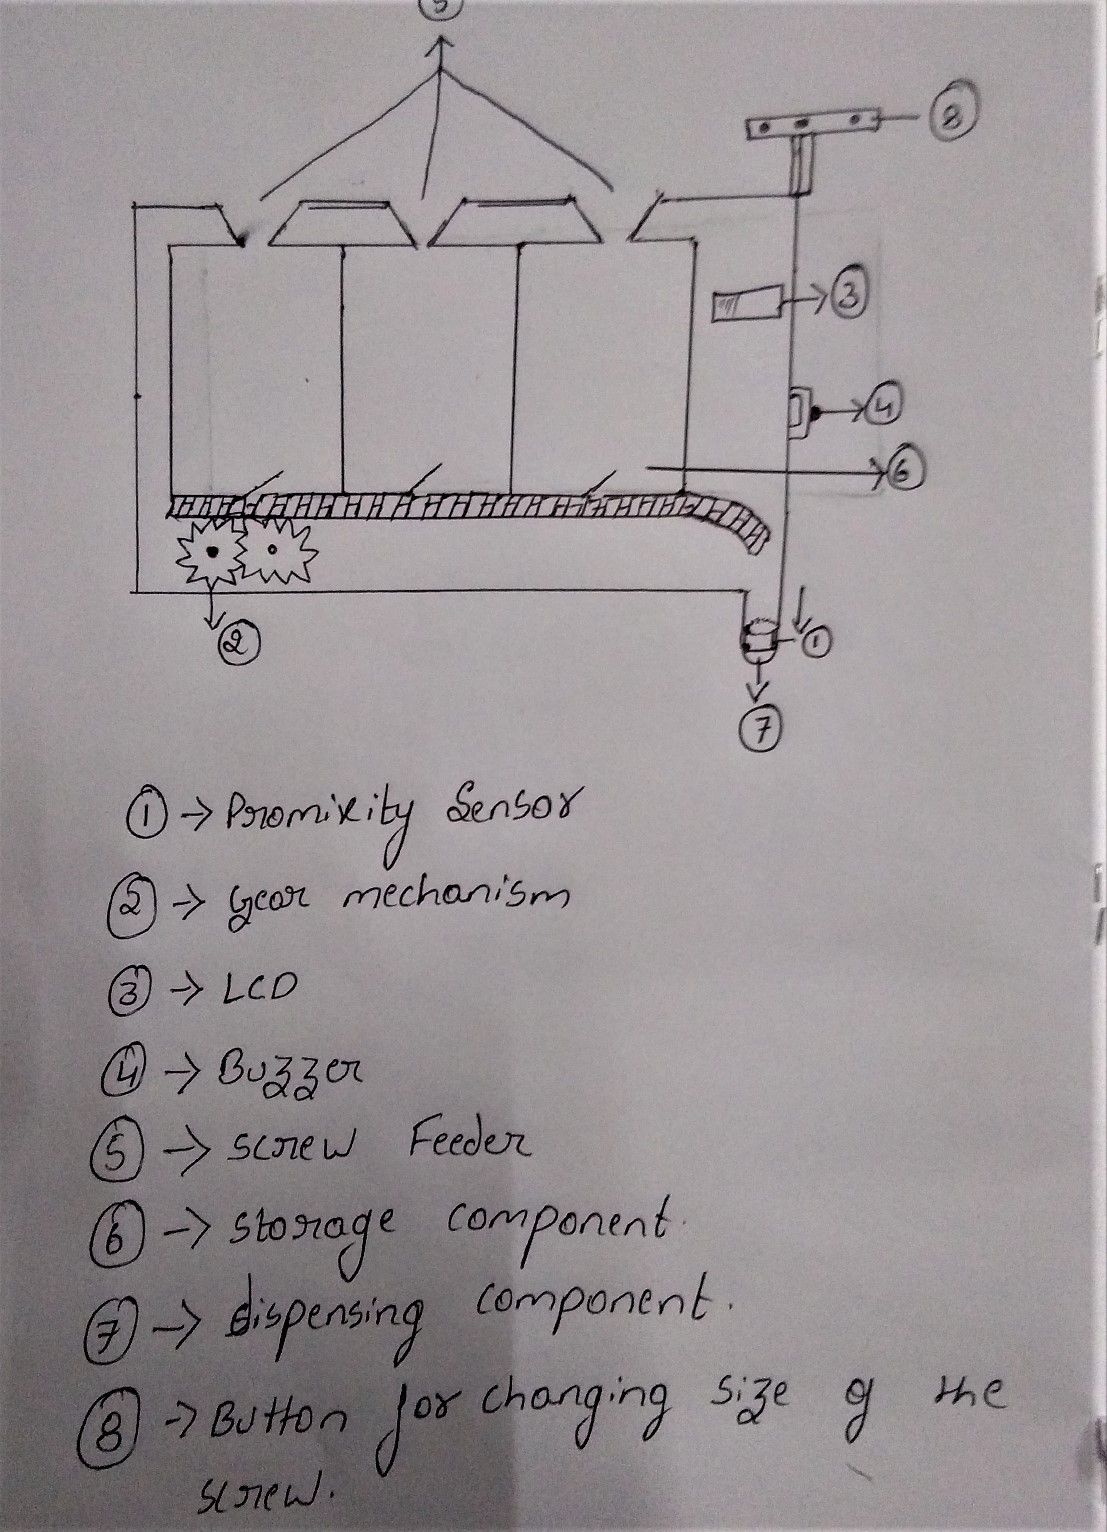 5
8
3
4
6
2
1
7
1 → Promixity Sensor
2 → Gear mechanism
3 → LCD
4 → Buzzer
5 → screw Feeder
6 → storage component.
7 → dispensing component.
8 → Button for changing size of the
screw.